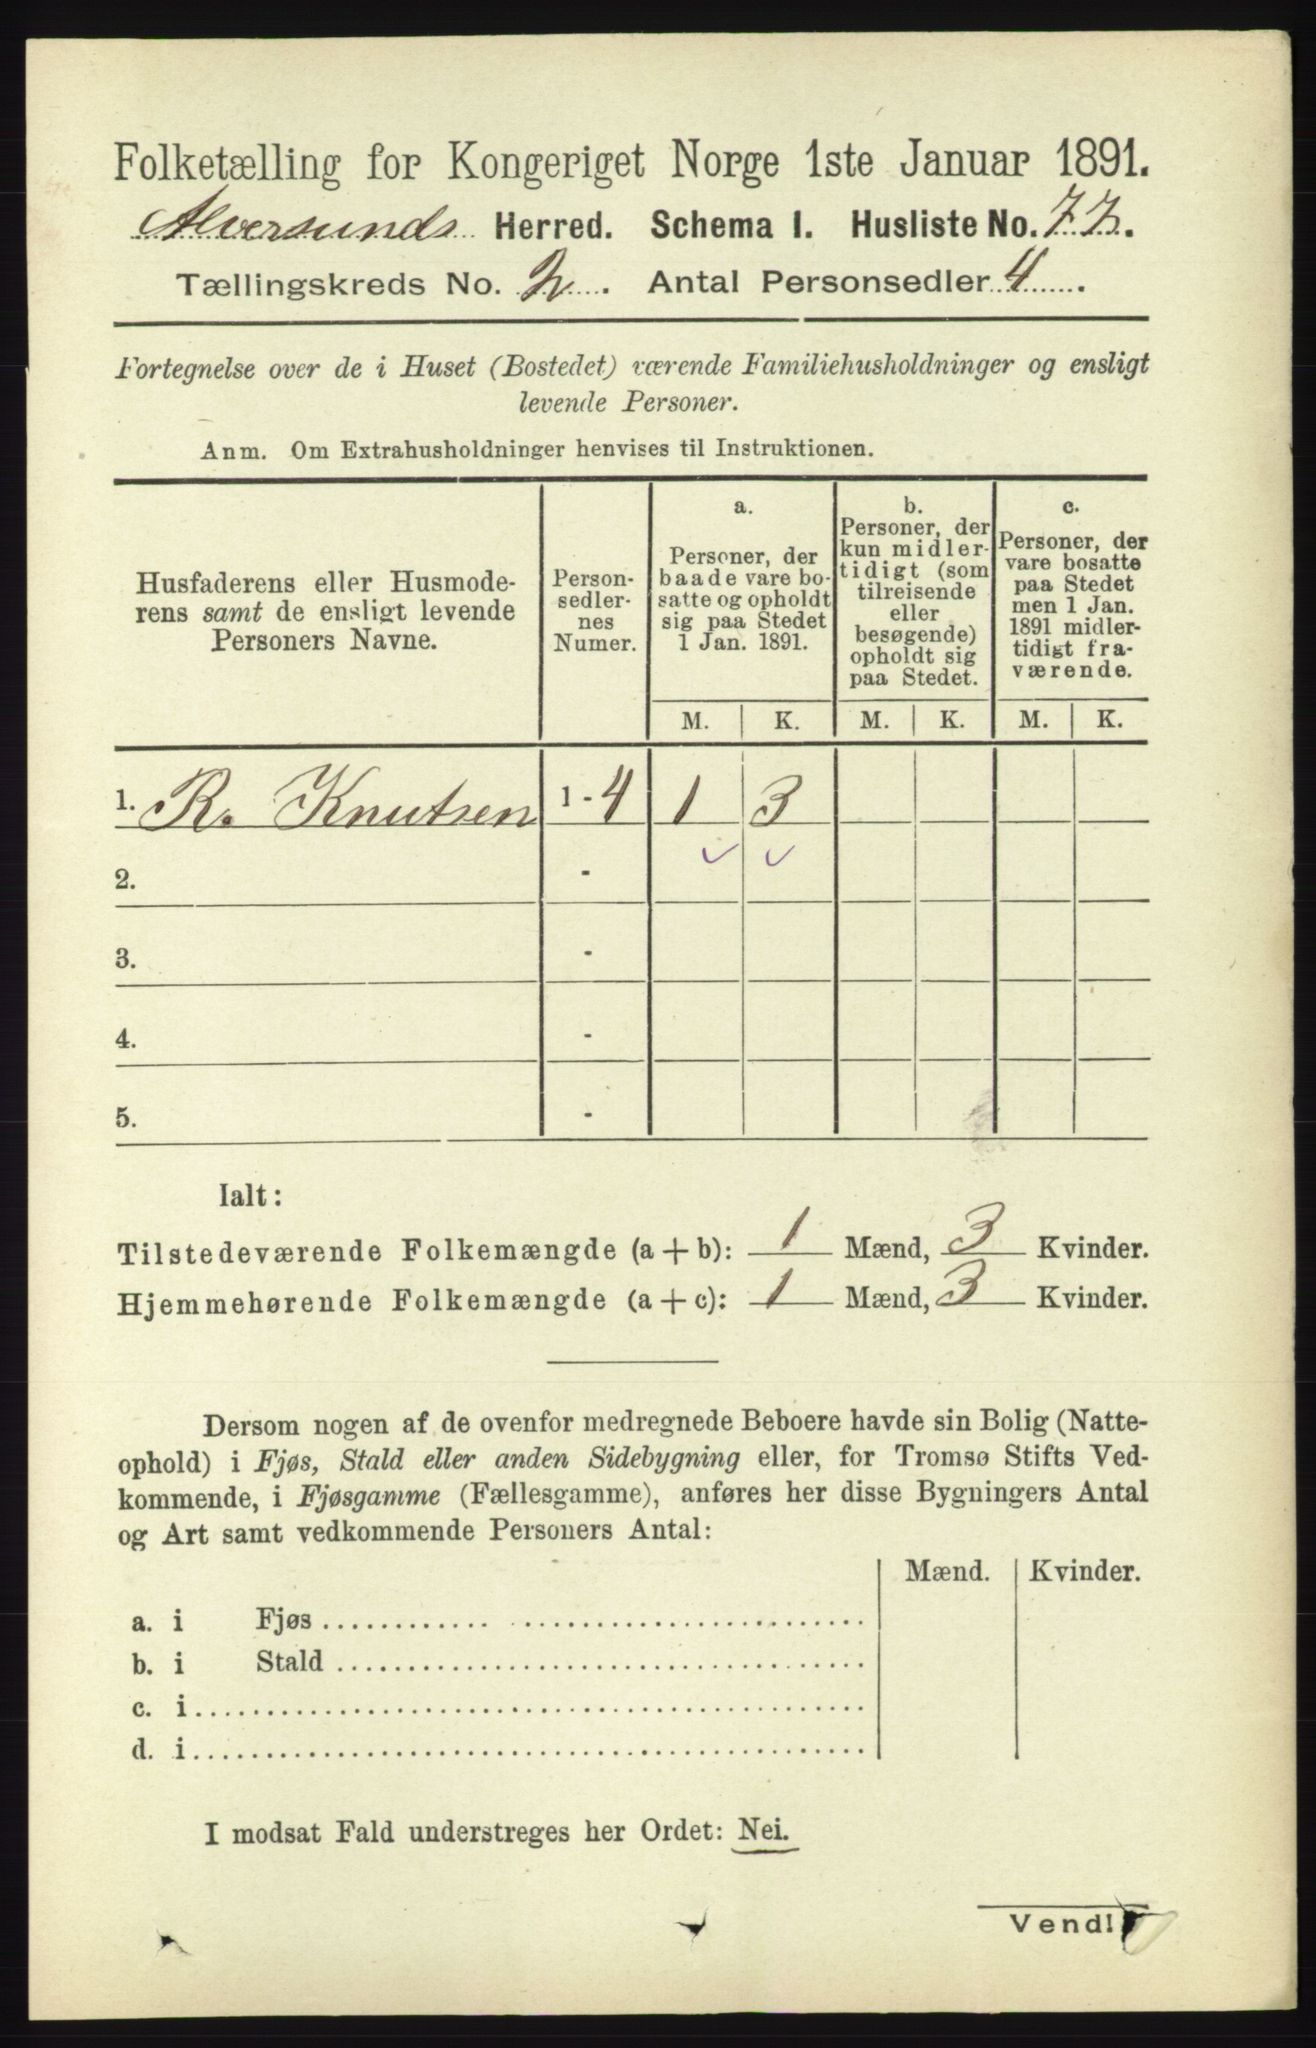 Folketælling for Kongeriget Norge 1ste Januar 1891.
Alversunds Herred. Schema I. Husliste No. 77.
Tællingskreds No. 2. Antal Personsedler 4.
Fortegnelse over de i Huset (Bostedet) værende Familiehusholdninger og ensligt
levende Personer.
Anm. Om Extrahusholdninger henvises til Instruktionen.
Husfaderens eller Husmode-
rens samt de ensligt levende
Personers Navne.
Person-
sedler-
nes
Numer.
a.
Personer, der
baade vare bo-
satte og opholdt
sig paa Stedet
1 Jan. 1891.
b.
Personer, der
kun midler-
tidigt (som
tilreisende
eller
besøgende)
opholdt sig
paa Stedet.
c.
Personer, der
vare bosatte
paa Stedet
men 1 Jan.
1891 midler-
tidigt fra-
værende.
M. K. M. K. M. K.
1. R. Knutsen 1 - 4 1 3
2. -
3. -
4. -
5. -
Ialt:
Tilstedeværende Folkemængde (a + b): 1 Mænd, 3 Kvinder.
Hjemmehørende Folkemængde (a + c): 1 Mænd, 3 Kvinder.
Dersom nogen af de ovenfor medregnede Beboere havde sin Bolig (Natte-
ophold) i Fjøs, Stald eller anden Sidebygning eller, for Tromsø Stifts Ved-
kommende, i Fjøsgamme (Fællesgamme), anføres her disse Bygningers Antal
og Art samt vedkommende Personers Antal:
Mænd. Kvinder.
a. i Fjøs
b. i Stald
c. i
d. i
I modsat Fald understreges her Ordet: Nei.
Vend!